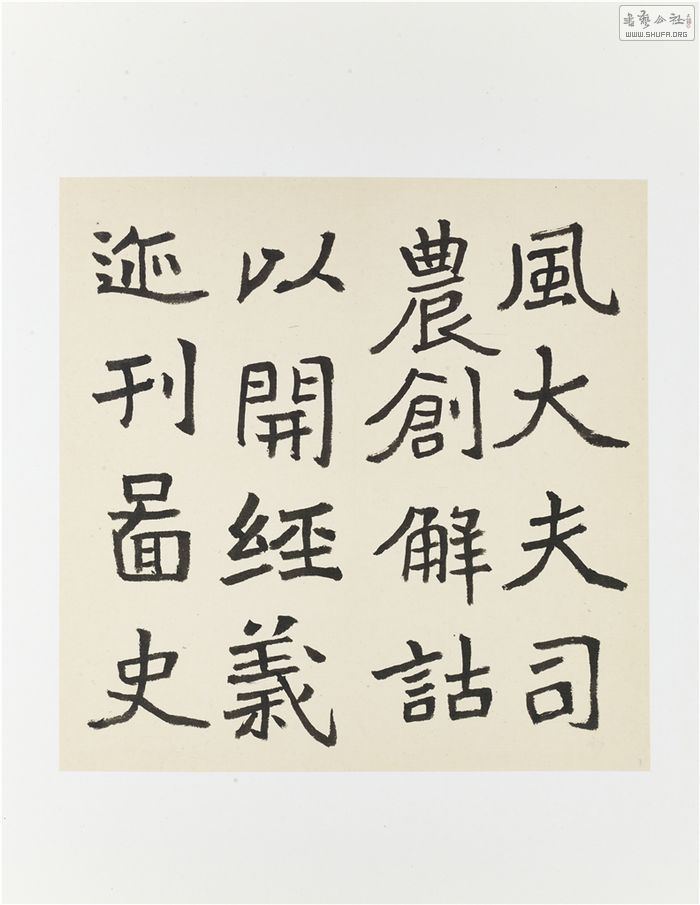 風大夫司
農創解詁
以開經義
迹刊圖史
書藝公社
WWW.SHUFA.ORG